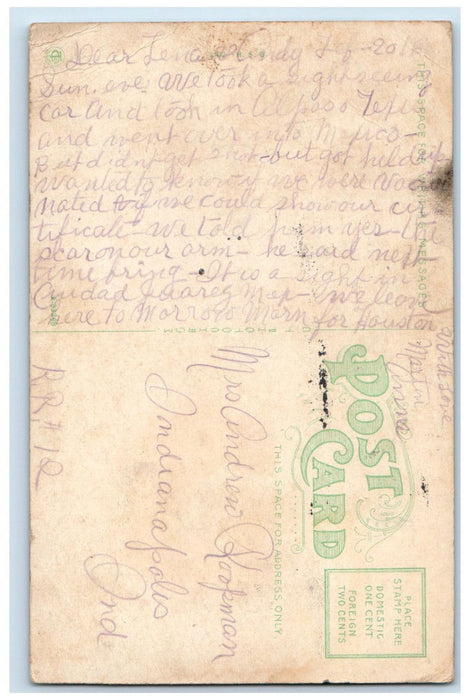 Dear Lena & Andy 2-6-2014
Sun. eve. We took a sight seeing
car and took in Elpaso Texas
and went over into Mexico
But didn't get shot - but got held up
wanted to know if we were vacci
nated or if we could show our cir
tificate - we told him yes - the
scar on our arm - he said next
time bring - It is a sight in
Ciudad Juarez Mex - we leave
here to Morrow Morn for Houston
With love
Martin
Anna
THIS SPACE FOR MESSAGE
Mrs Andrew Hookman
Indianapolis
Ind
R R # 12
POST
CARD
THIS SPACE FOR ADDRESS ONLY
PLACE
STAMP HERE
DOMESTIC
ONE CENT
FOREIGN
TWO CENTS